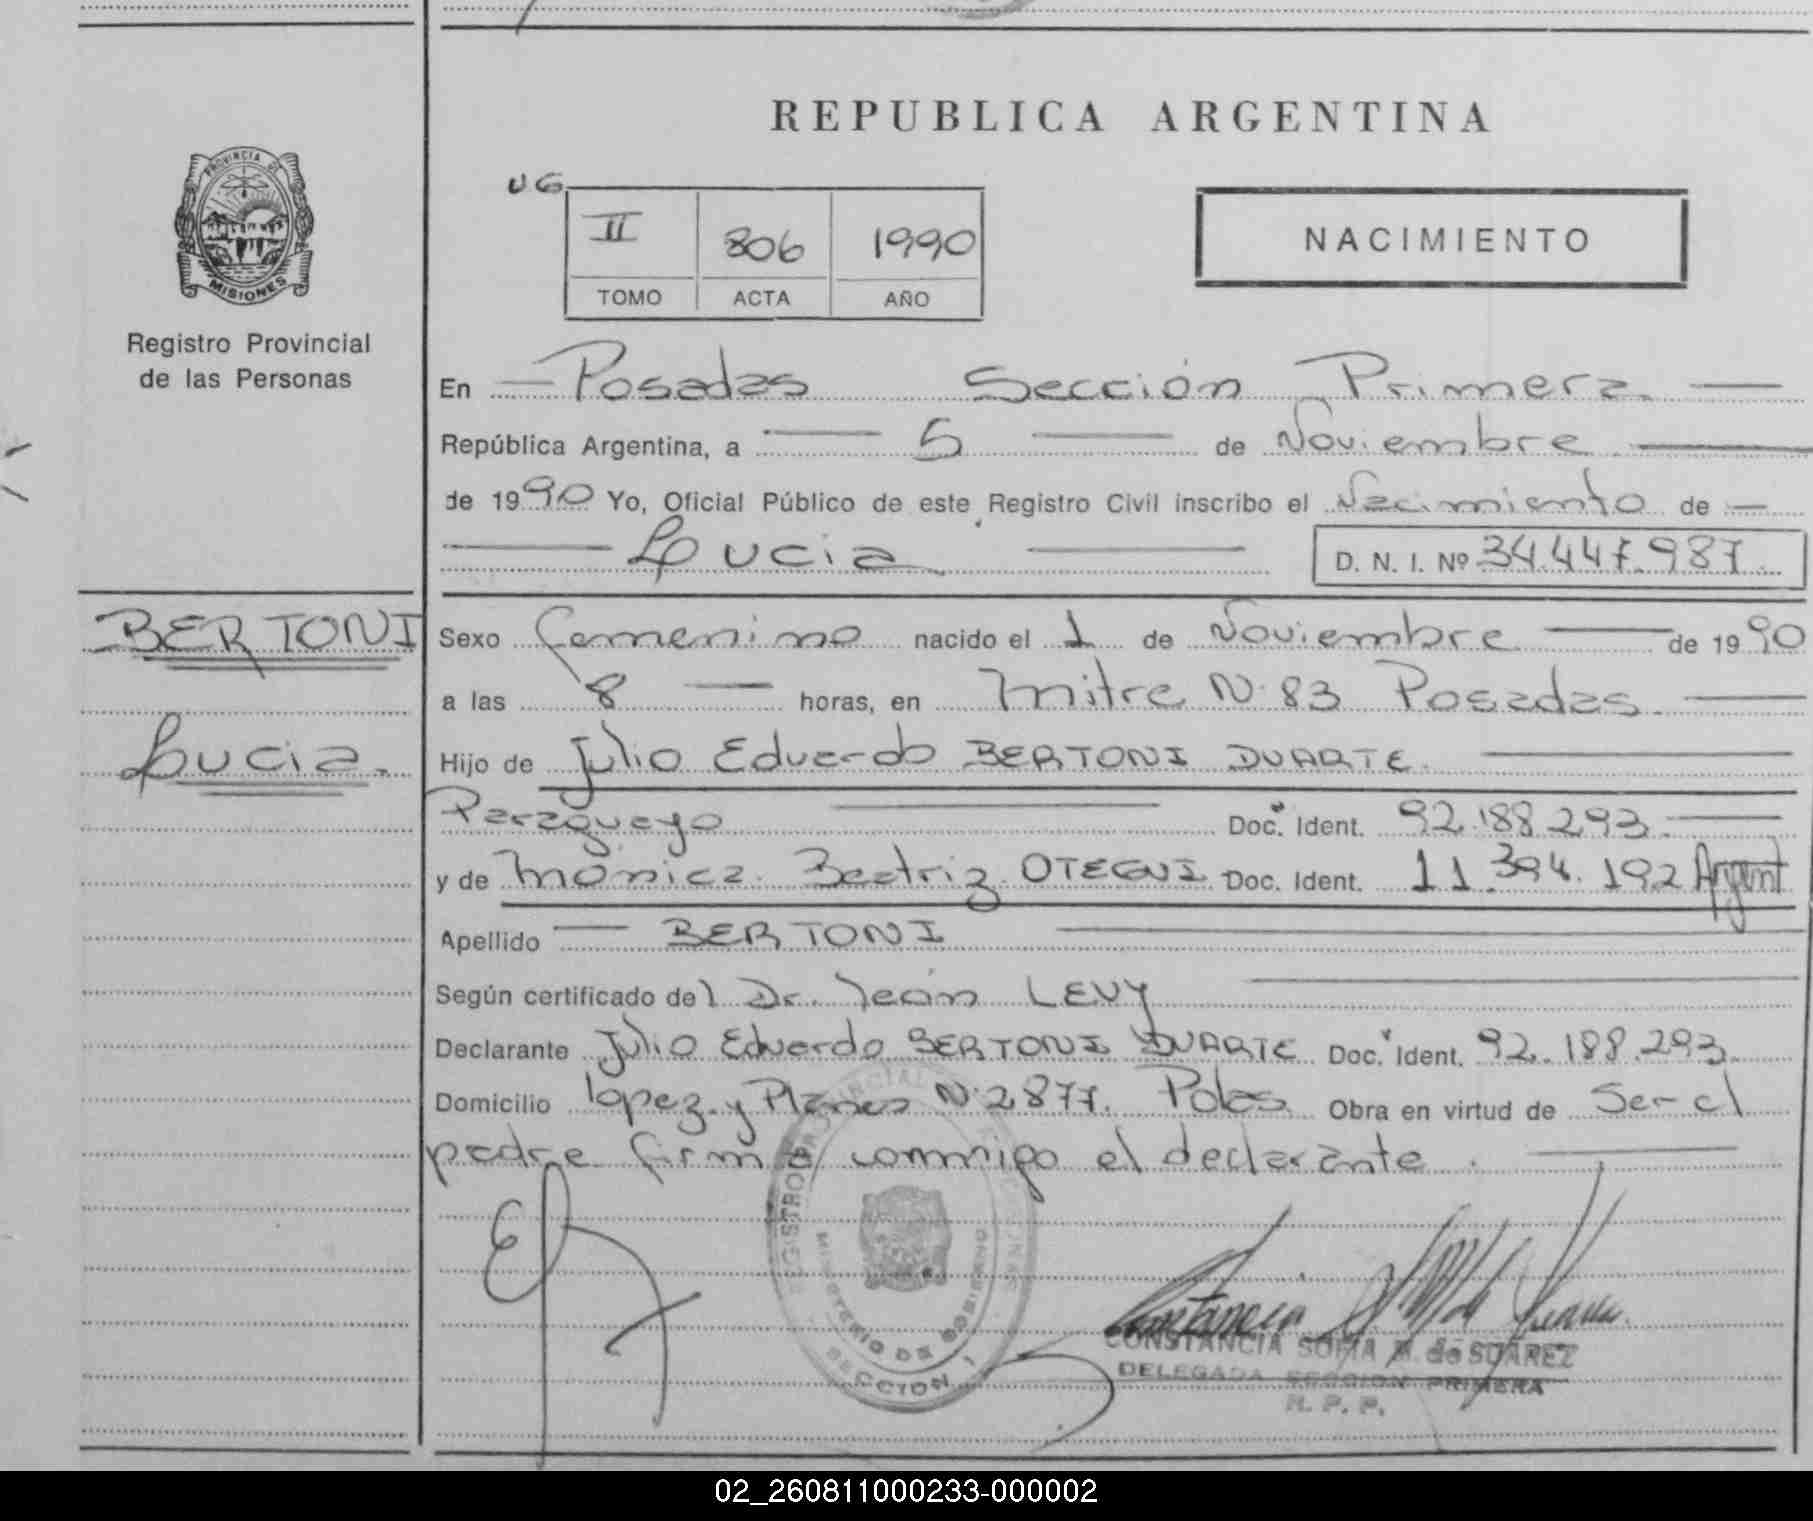 REPUBLICA ARGENTINA
PROVINCIA DE
MISIONES
Registro Provincial
de las Personas
UG
II 806 1990
TOMO ACTA AÑO
NACIMIENTO
En Posadas Sección Primera
República Argentina, a 5 de Noviembre
de 1990 Yo, Oficial Público de este Registro Civil inscribo el Nacimiento de
Lucia
D. N. I. Nº 34.447.987
BERTONI
Lucia.
Sexo femenino nacido el 1 de Noviembre de 1990
a las 8 horas, en Mitre N. 83 Posadas.
Hijo de Julio Eduardo BERTONI DUARTE.
Paraguayo Doc. Ident. 92.188.293.
y de Mónica Beatriz OTEGUI Doc. Ident. 11.394.192 Argent
Apellido BERTONI
Según certificado del Dr. Jeán LEVY
Declarante Julio Eduardo BERTONI DUARTE Doc. Ident. 92.188.293.
Domicilio lopez y Planes N. 2877. Pdas Obra en virtud de Ser el
padre firma conmigo el declarante.
REGISTRO PROVINCIAL
MINISTERIO DE GOBIERNO
SECCION 1
CONSTANCIA SOFIA M. de SUAREZ
DELEGADA SECCION PRIMERA
R. P. P.
02_260811000233-000002